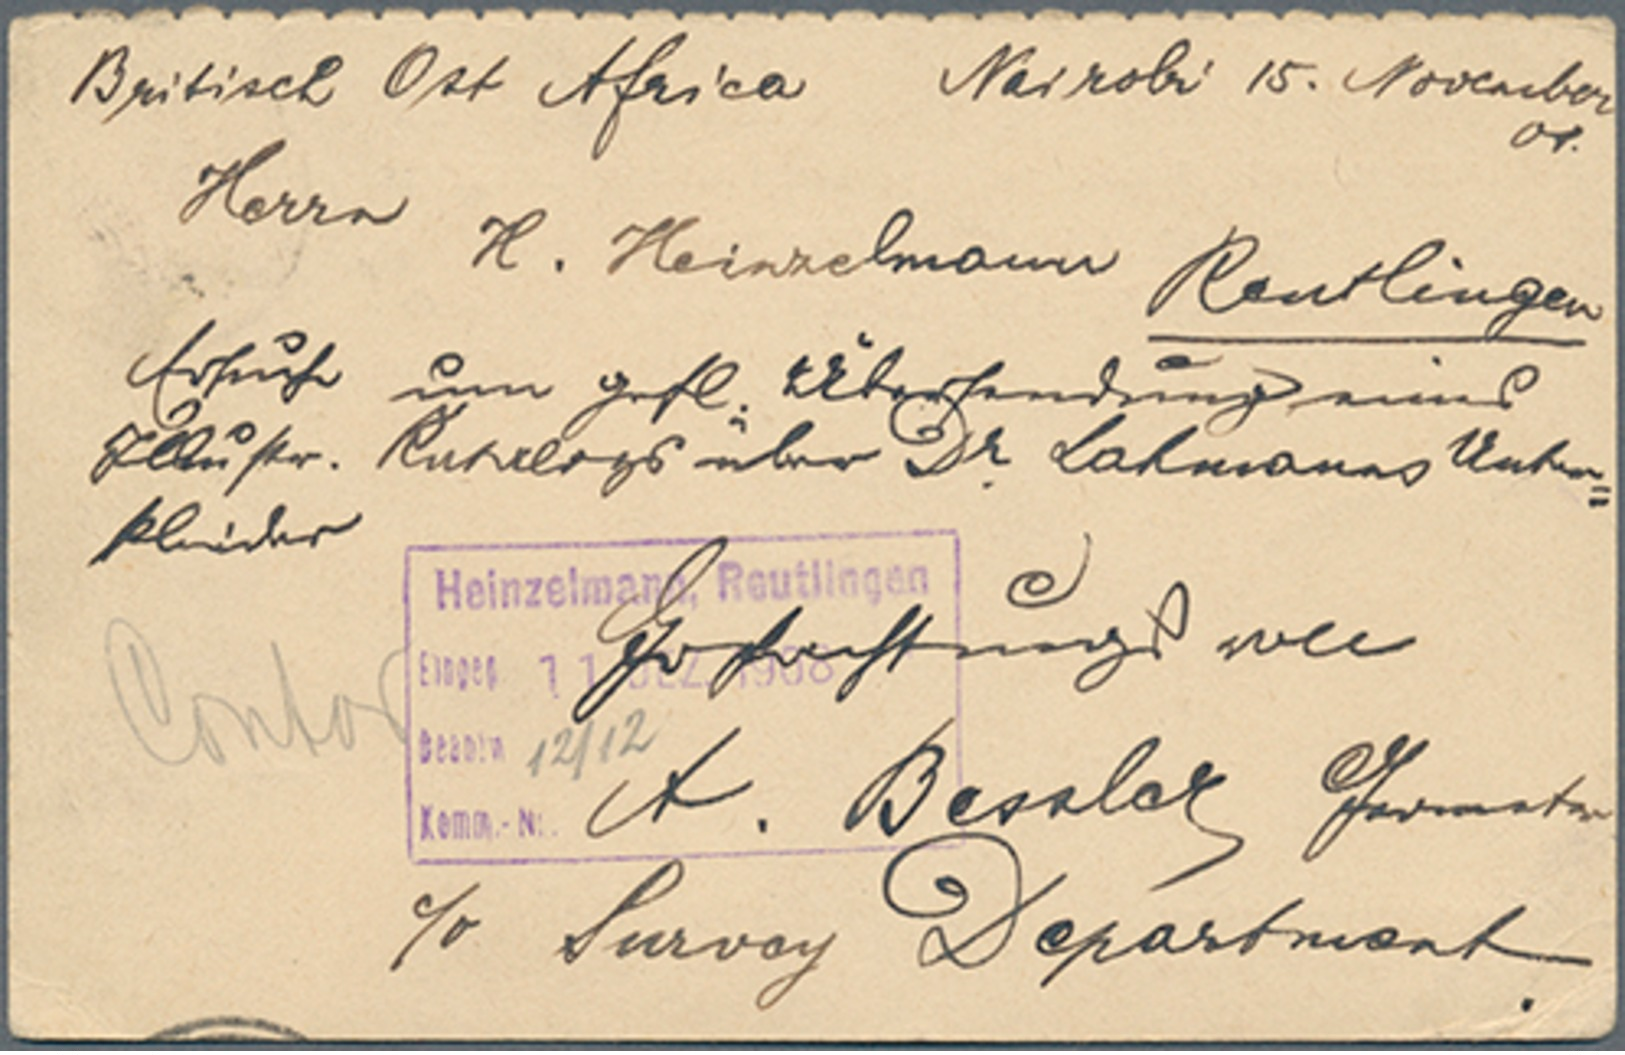 Britisch Ost Afrika Nairobi 15. November
08.
Herrn
H. Heinzelmann Reutlingen
Ersuche um gefl. Übersendung eines
Illustr. Katalogs über Dr. Lahmanns Unter=
kleider
Heinzelmann, Reutlingen
Hochachtungsvoll
Eingeg. 11. DEZ. 1908
Contor
Beantw. 12/12
A. Bessler Geometer
Komm.-Nr.
c/o Survey Department.